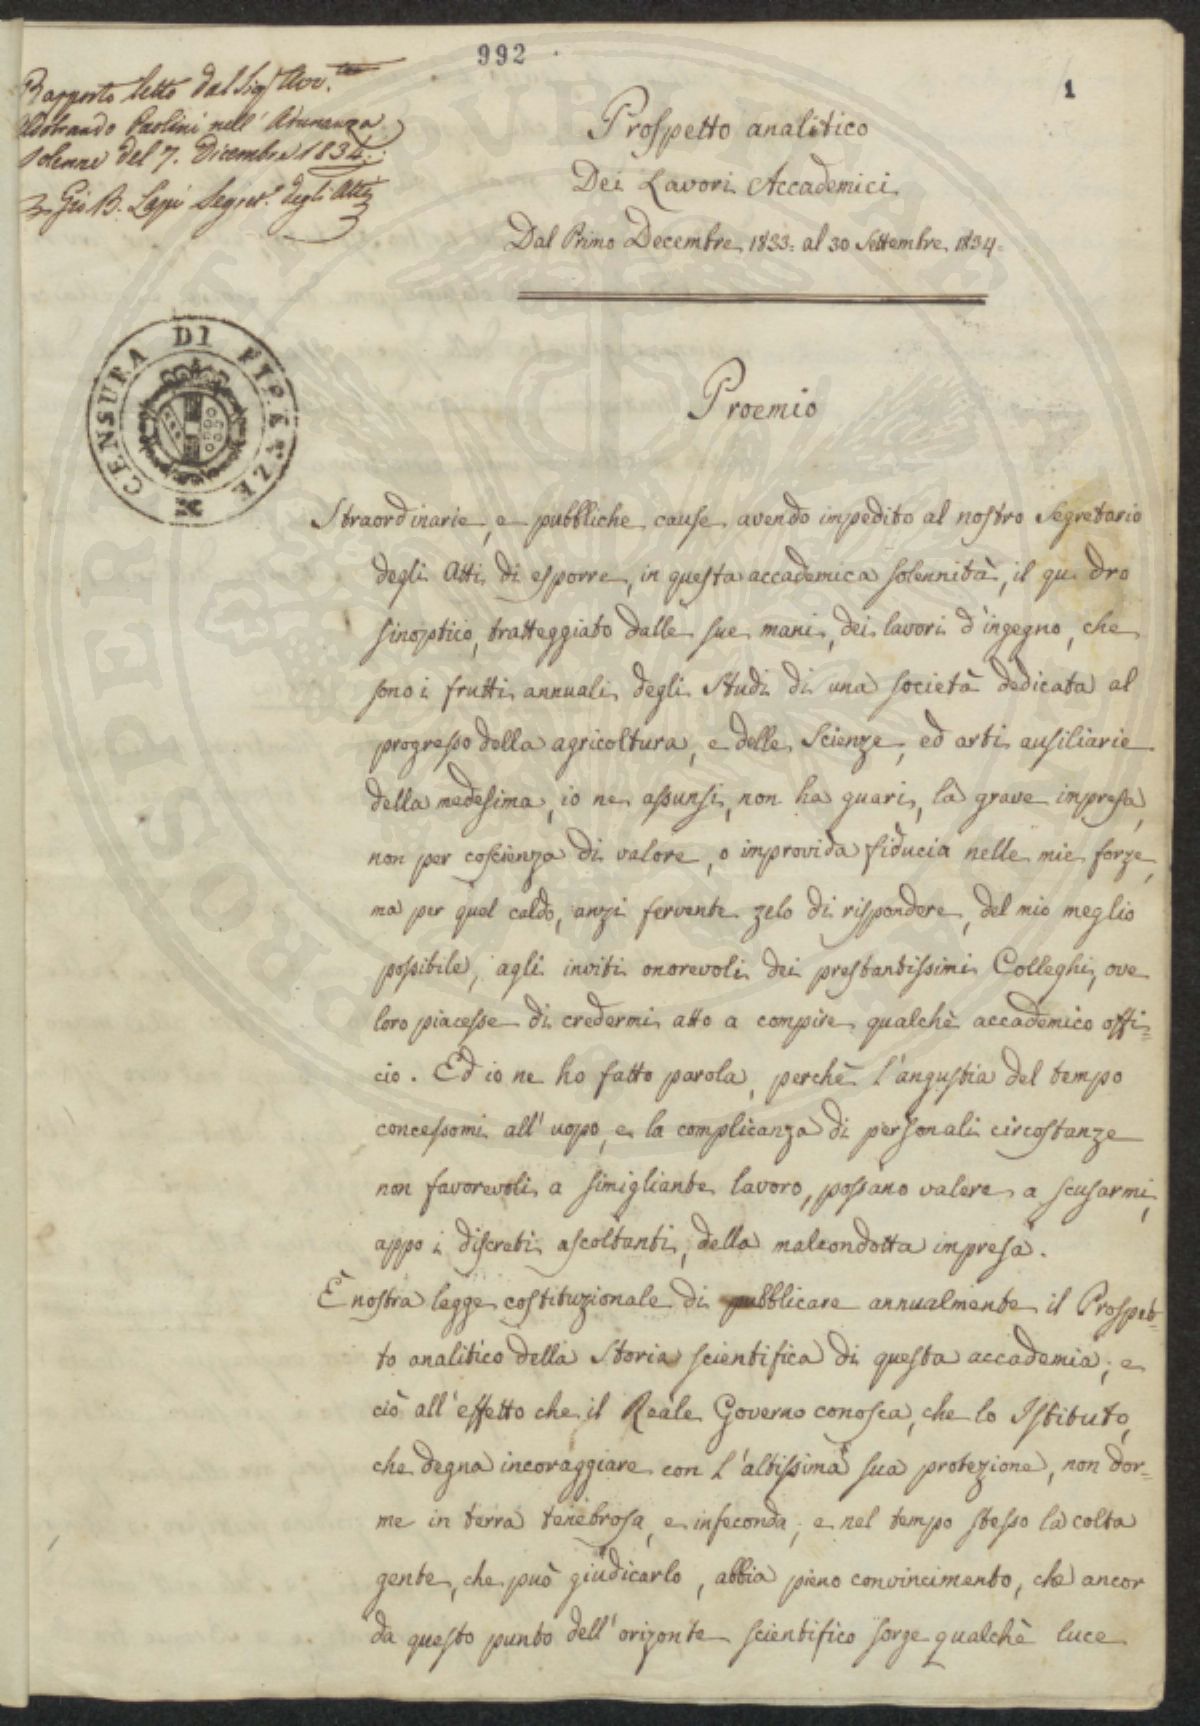 992
1
Rapporto letto dal Sig.r Avv.to
Aldobrando Paolini nell'Adunanza
solenne del 7. Dicembre 1834.
Gio B. Lapi Segret.o degli Atti
Prospetto analitico
Dei Lavori Accademici
Dal Primo Decembre 1833. al 30 Settembre 1834.
CENSURA DI FIRENZE
Proemio
Straordinarie, e pubbliche cause avendo impedito al nostro Segretario
degli Atti di esporre, in questa accademica solennità, il quadro
sinoptico, tratteggiato dalle sue mani, dei lavori d'ingegno, che
sono i frutti annuali degli Studi di una società dedicata al
progresso della agricoltura, e delle Scienze, ed arti ausiliarie
della medesima, io ne assunsi, non ha guari, la grave impresa,
non per coscienza di valore, o improvida fiducia nelle mie forze,
ma per quel caldo, anzi fervente zelo di rispondere, del mio meglio
possibile, agli inviti onorevoli dei prestantissimi Colleghi, ove
loro piacesse di credermi atto a compire qualchè accademico offi=
cio. Ed io ne ho fatto parola, perchè l'angustia del tempo
concessomi all'uopo, e la complicanza di personali circostanze
non favorevoli a simigliante lavoro, possano valere a scusarmi,
appo i discreti ascoltanti, della malcondotta impresa.
È nostra legge costituzionale di pubblicare annualmente il Prospet=
to analitico della Storia scientifica di questa accademia; e
ciò all'effetto che il Reale Governo conosca, che lo Istituto,
che degna incoraggiare con l'altissima sua protezione, non dor=
me in terra tenebrosa, e infeconda; e nel tempo stesso la colta
gente, che può giudicarlo, abbia pieno convincimento, che ancor
da questo punto dell'orizonte scientifico sorge qualchè luce
PROSPERITÀ